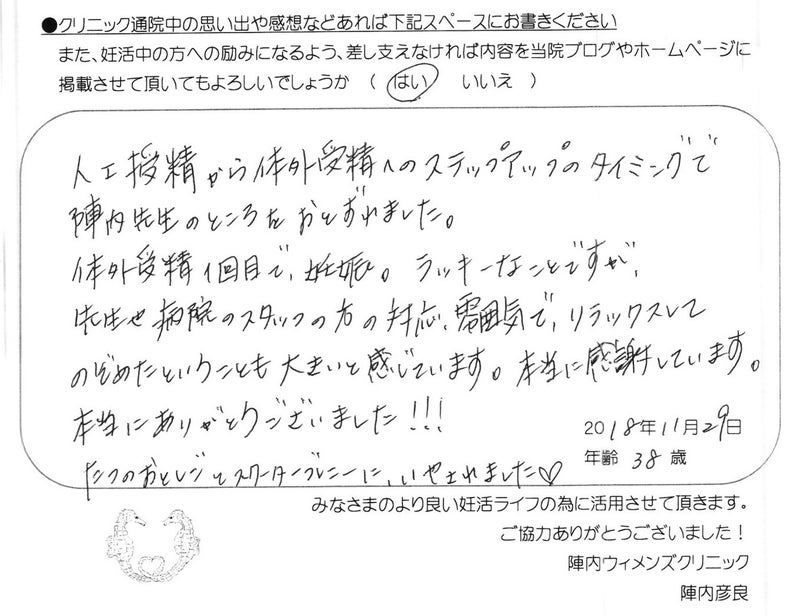 ●クリニック通院中の思い出や感想などあれば下記スペースにお書きください
また、妊活中の方への励みになるよう、差し支えなければ内容を当院ブログやホームページに
掲載させて頂いてもよろしいでしょうか （ はい いいえ ）
人工授精から体外受精へのステップアップのタイミングで
陣内先生のところをおとずれました。
体外受精1回目で、妊娠。ラッキーなことですが、
先生や病院のスタッフの方の対応、雰囲気で、リラックスして
のぞめたということも大きいと感じています。本当に感謝しています。
本当にありがとうございました!!!
2018年11月29日
年齢 38歳
たつのおとしごとスクーターブレニーに、いやされました♡
みなさまのより良い妊活ライフの為に活用させて頂きます。
ご協力ありがとうございました！
陣内ウィメンズクリニック
陣内彦良